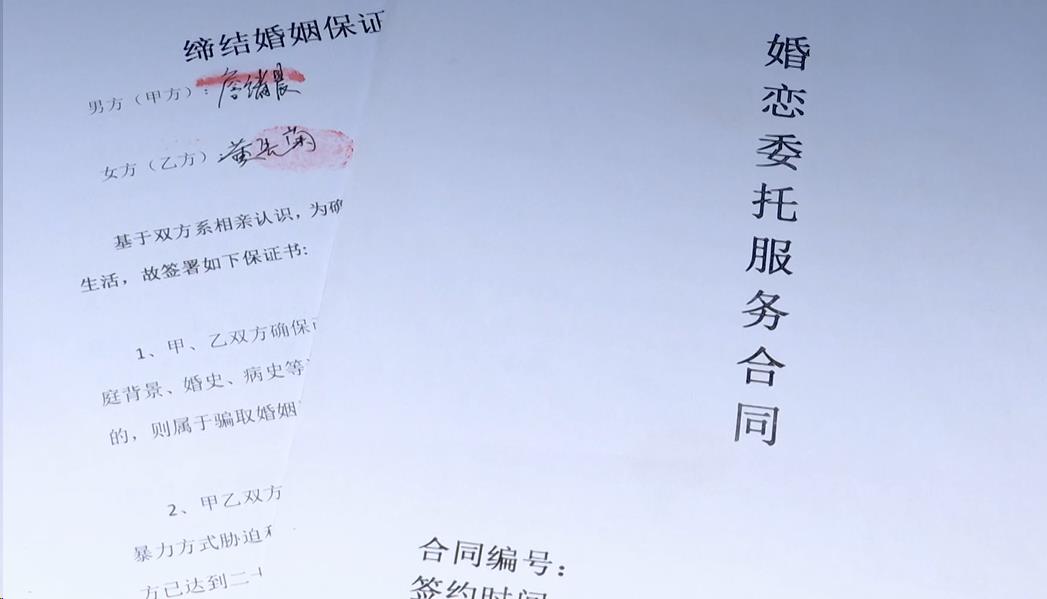 缔结婚姻保证
男方（甲方）：
女方（乙方）
基于双方系相亲认识，为确
生活，故签署如下保证书:
1、甲、乙双方确保
庭背景、婚史、病史等
的，则属于骗取婚姻
2、甲乙双方
暴力方式胁迫
方已达到二十
婚恋委托服务合同
合同编号：
签约时间